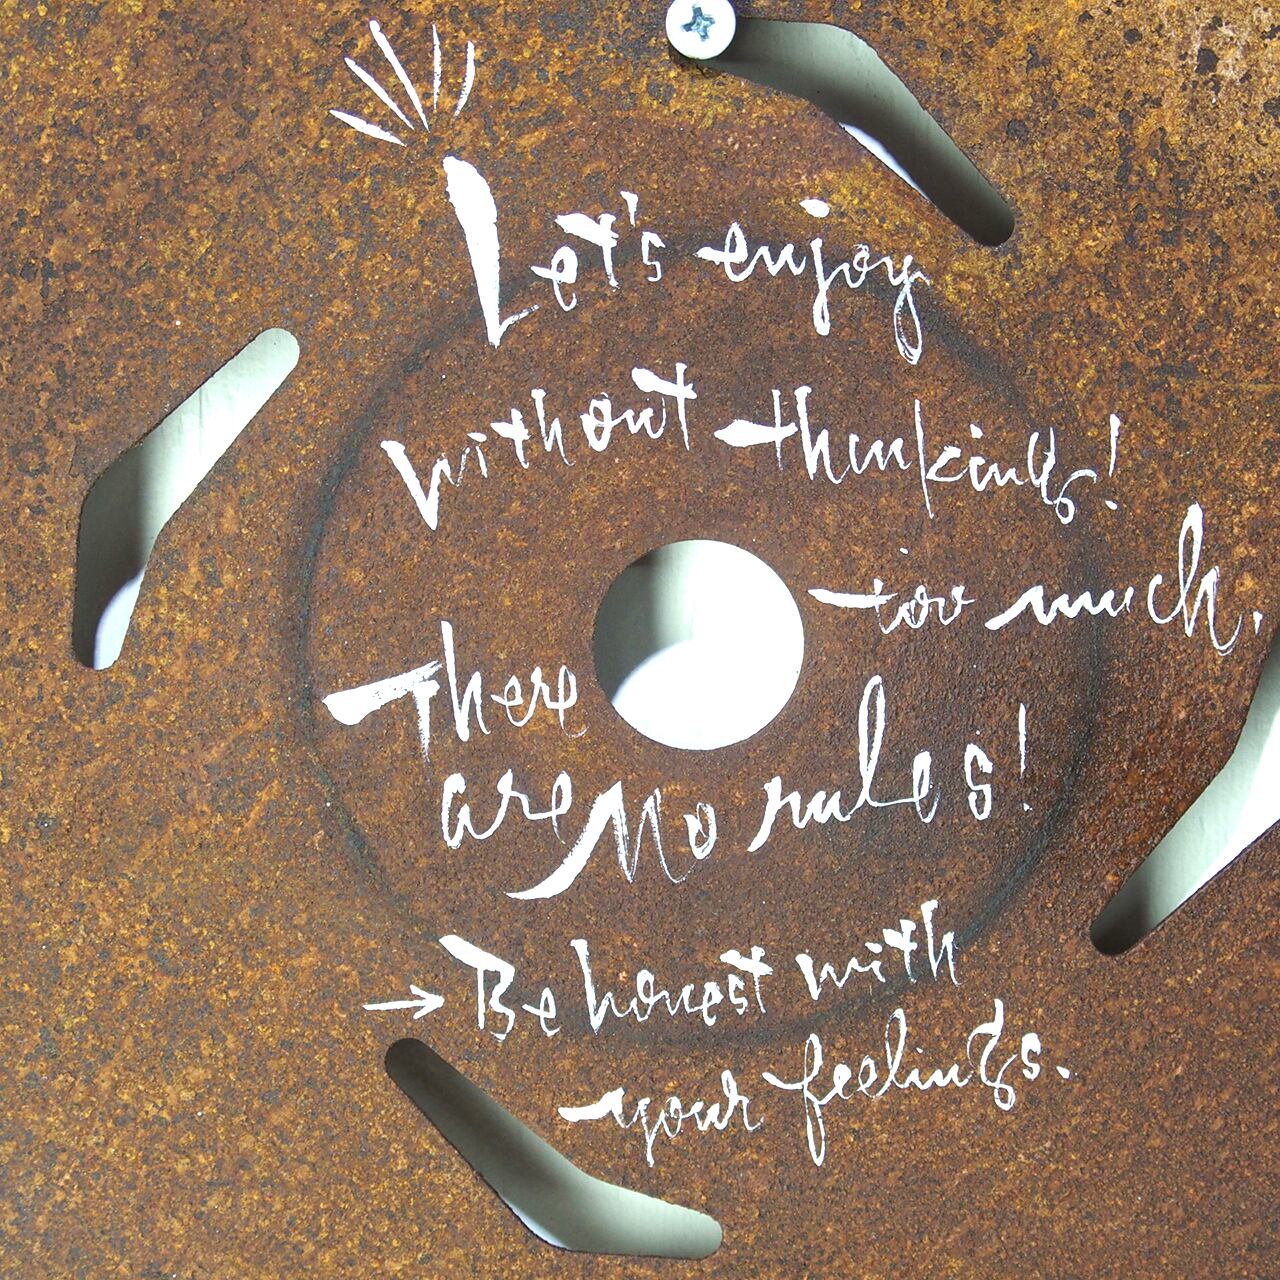 Let's enjoy
without thinking!
too much.
There
are No rules!
→ Be honest with
your feelings.